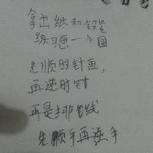 拿出纸和铅笔
练习画一个圆
先顺时针画,
再逆时针
再是排线
先顺手再逆手